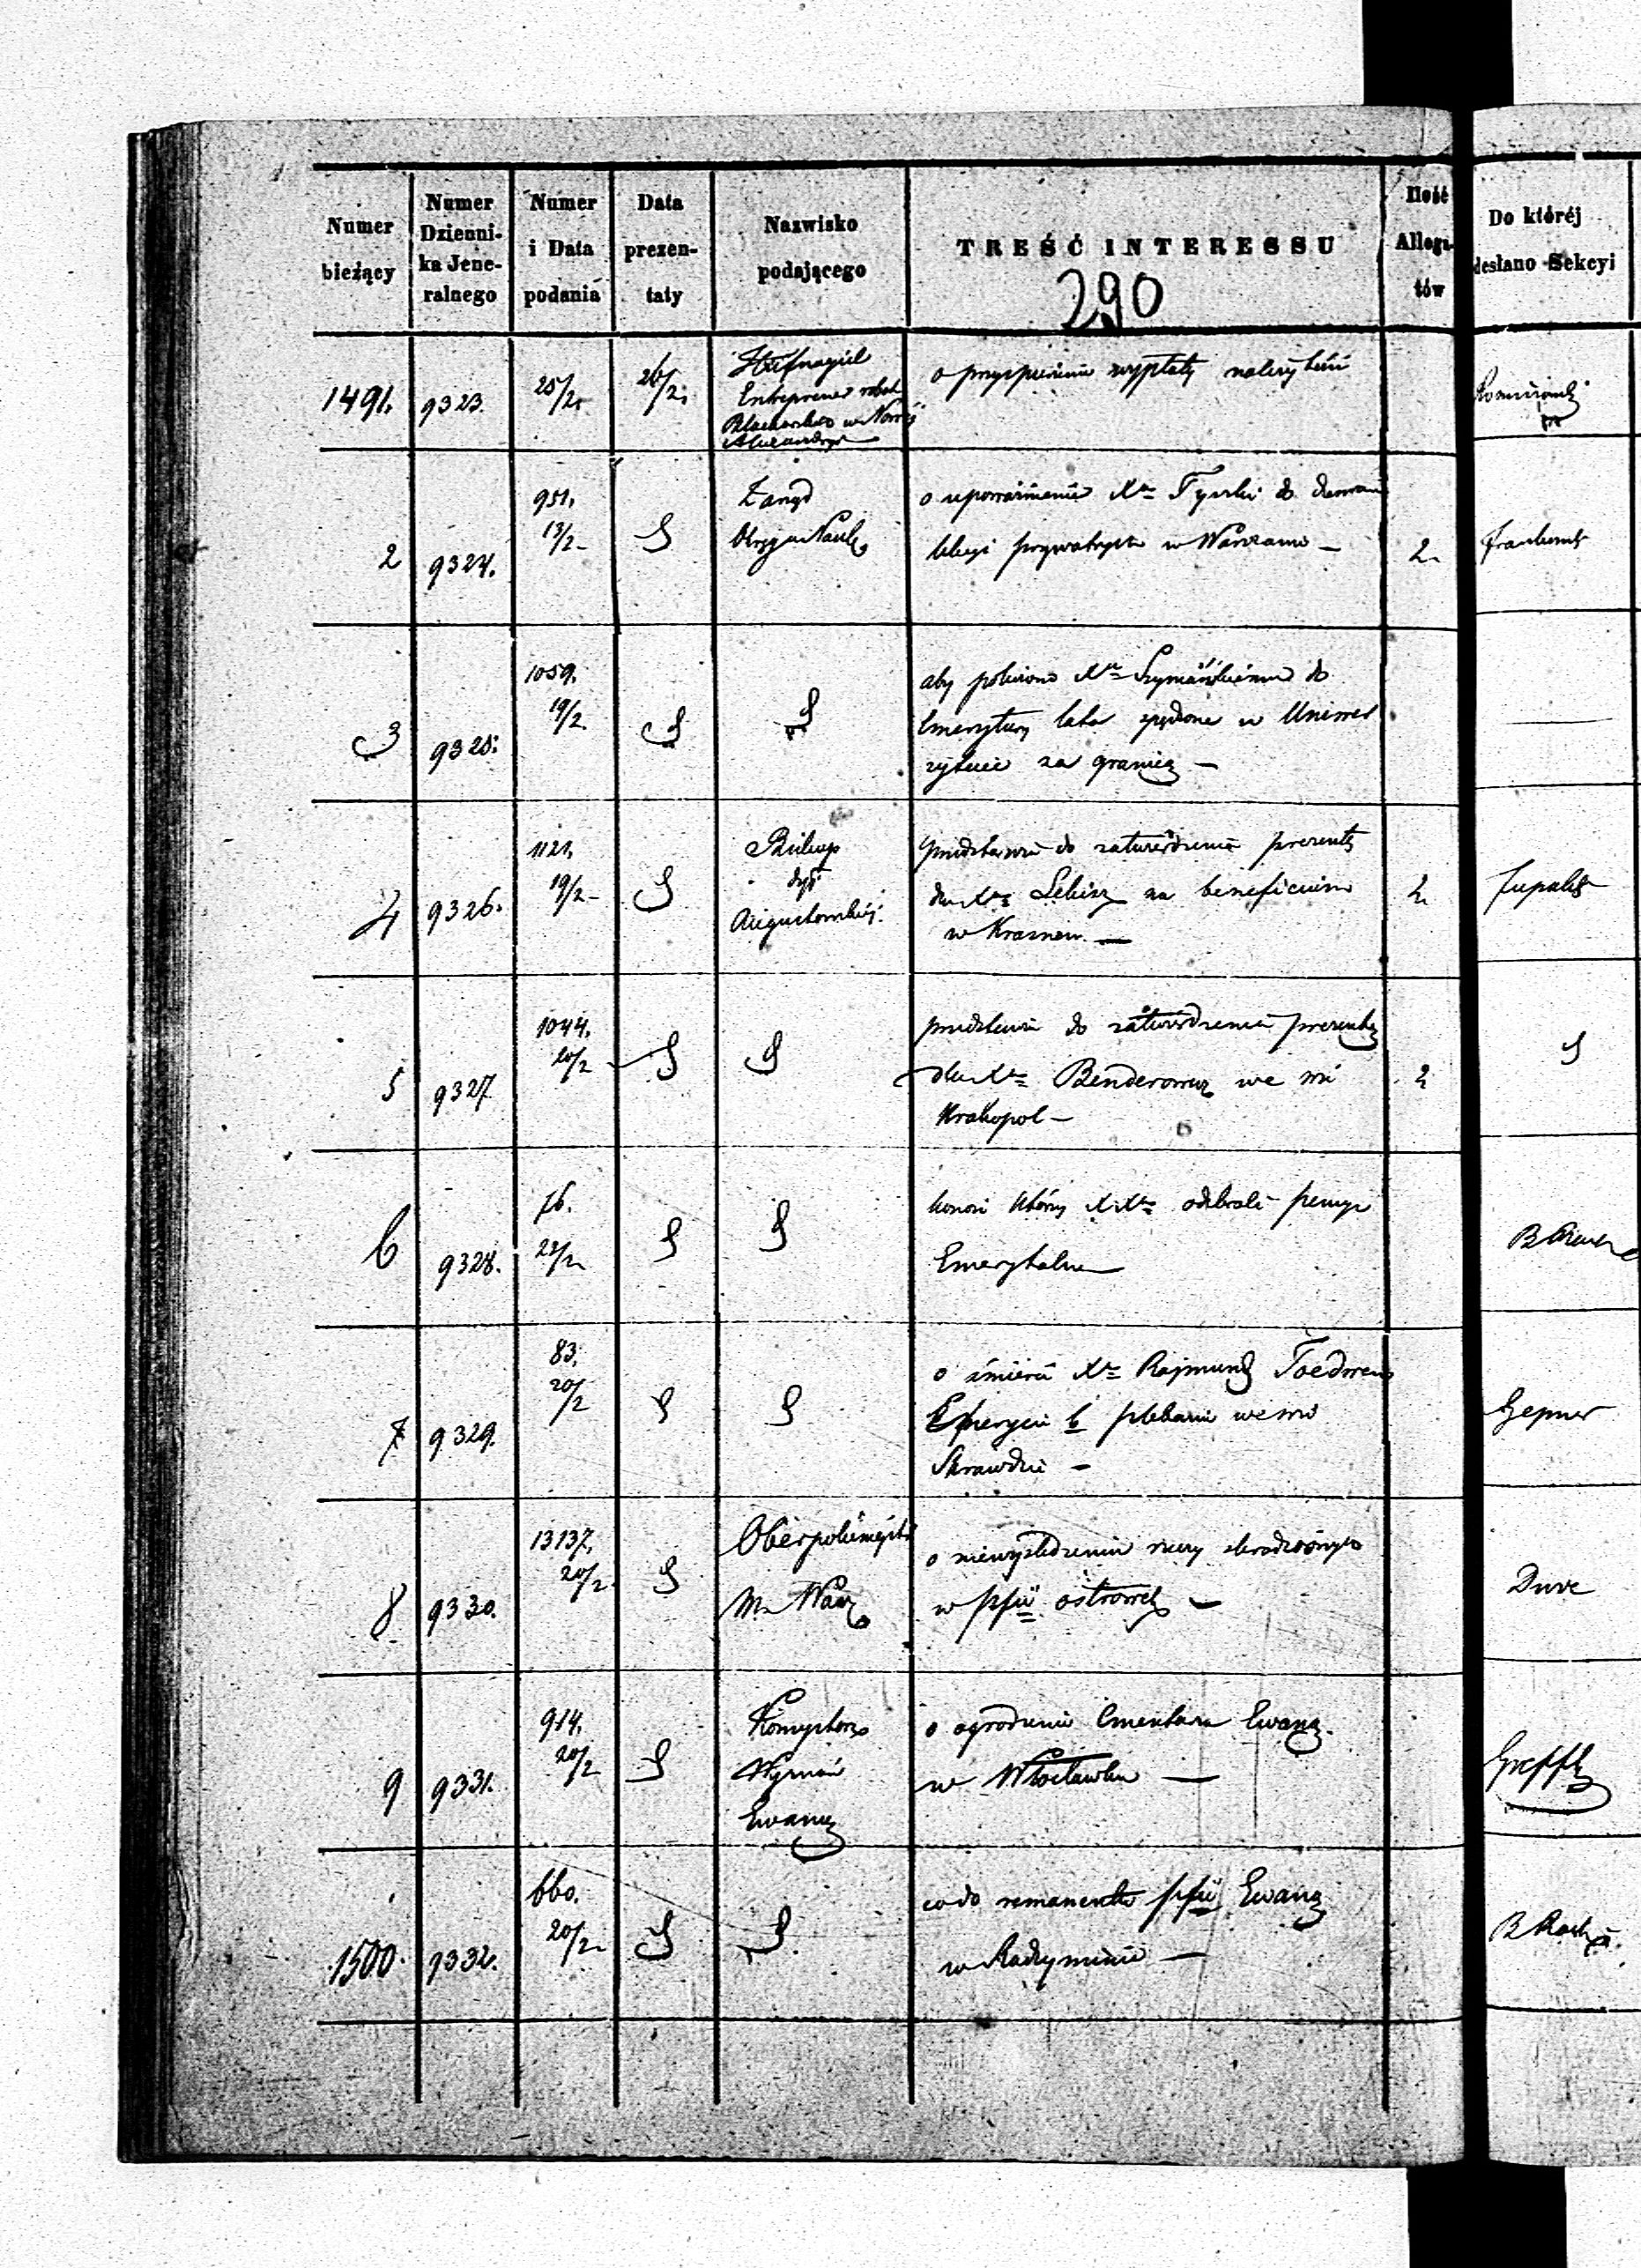 Numer bieżący
Numer Dzienni-ka Jene-ralnego
Numer i Data podania
Data prezen-taty
Nazwisko podającego
TREŚĆ INTERESSU
Ilość Allega-tów
Do któréj desłano Sekcyi
290
1491. 9323. 25/2. 26/2.
Hüfnagiel
Entreprener robot
Blacharskich w Nowej
Alexandryi
o przyspieszenie wypłaty należytości
2 9324.
951.
13/2
Zarząd
Okręgu Nauk
o upoważnienie Xa Tyszki do dawania
lekcyi prywatnych w Warszawie —
2
3 9325.
1059.
19/2.
aby policzono Xu Szymańskiemu do
Emerytury lata spędzone w Uniwer
sytecie za granicą —
4 9326.
1121.
19/2
Biskup
dyi
Augustowskiéj
przedstawia do zatwierdzenia prezentę
dla Xa Lebisz na beneficium
w Krasnem —
2
5 9327
1044.
20/2
przedstawia do zatwierdzenia prezentę
dla Xa Benderowicz we wsi
Krakopol —
2
6 9328.
76.
22/2
którzy XXa odebrali pensye
Emerytalne
7 9329.
83.
20/2
o śmierci Xa Rajmund
Emeryci b plebana we wsi
Skrawdzie —
Gepner
8 9330.
13137.
20/2
Oberpolicmajster
M. Warsz
o niewyśledzeniu rzeczy skradzionych
w pfii ostrowek —
Duve
9 9331.
914.
20/2
Konsystorz
Wyznań
Ewang
o ogrodzenie Cmentarza Ewang.
w Włocławku —
1500. 9332.
660.
20/2
co do remanentu pfii Ewang
w Radzyminie —